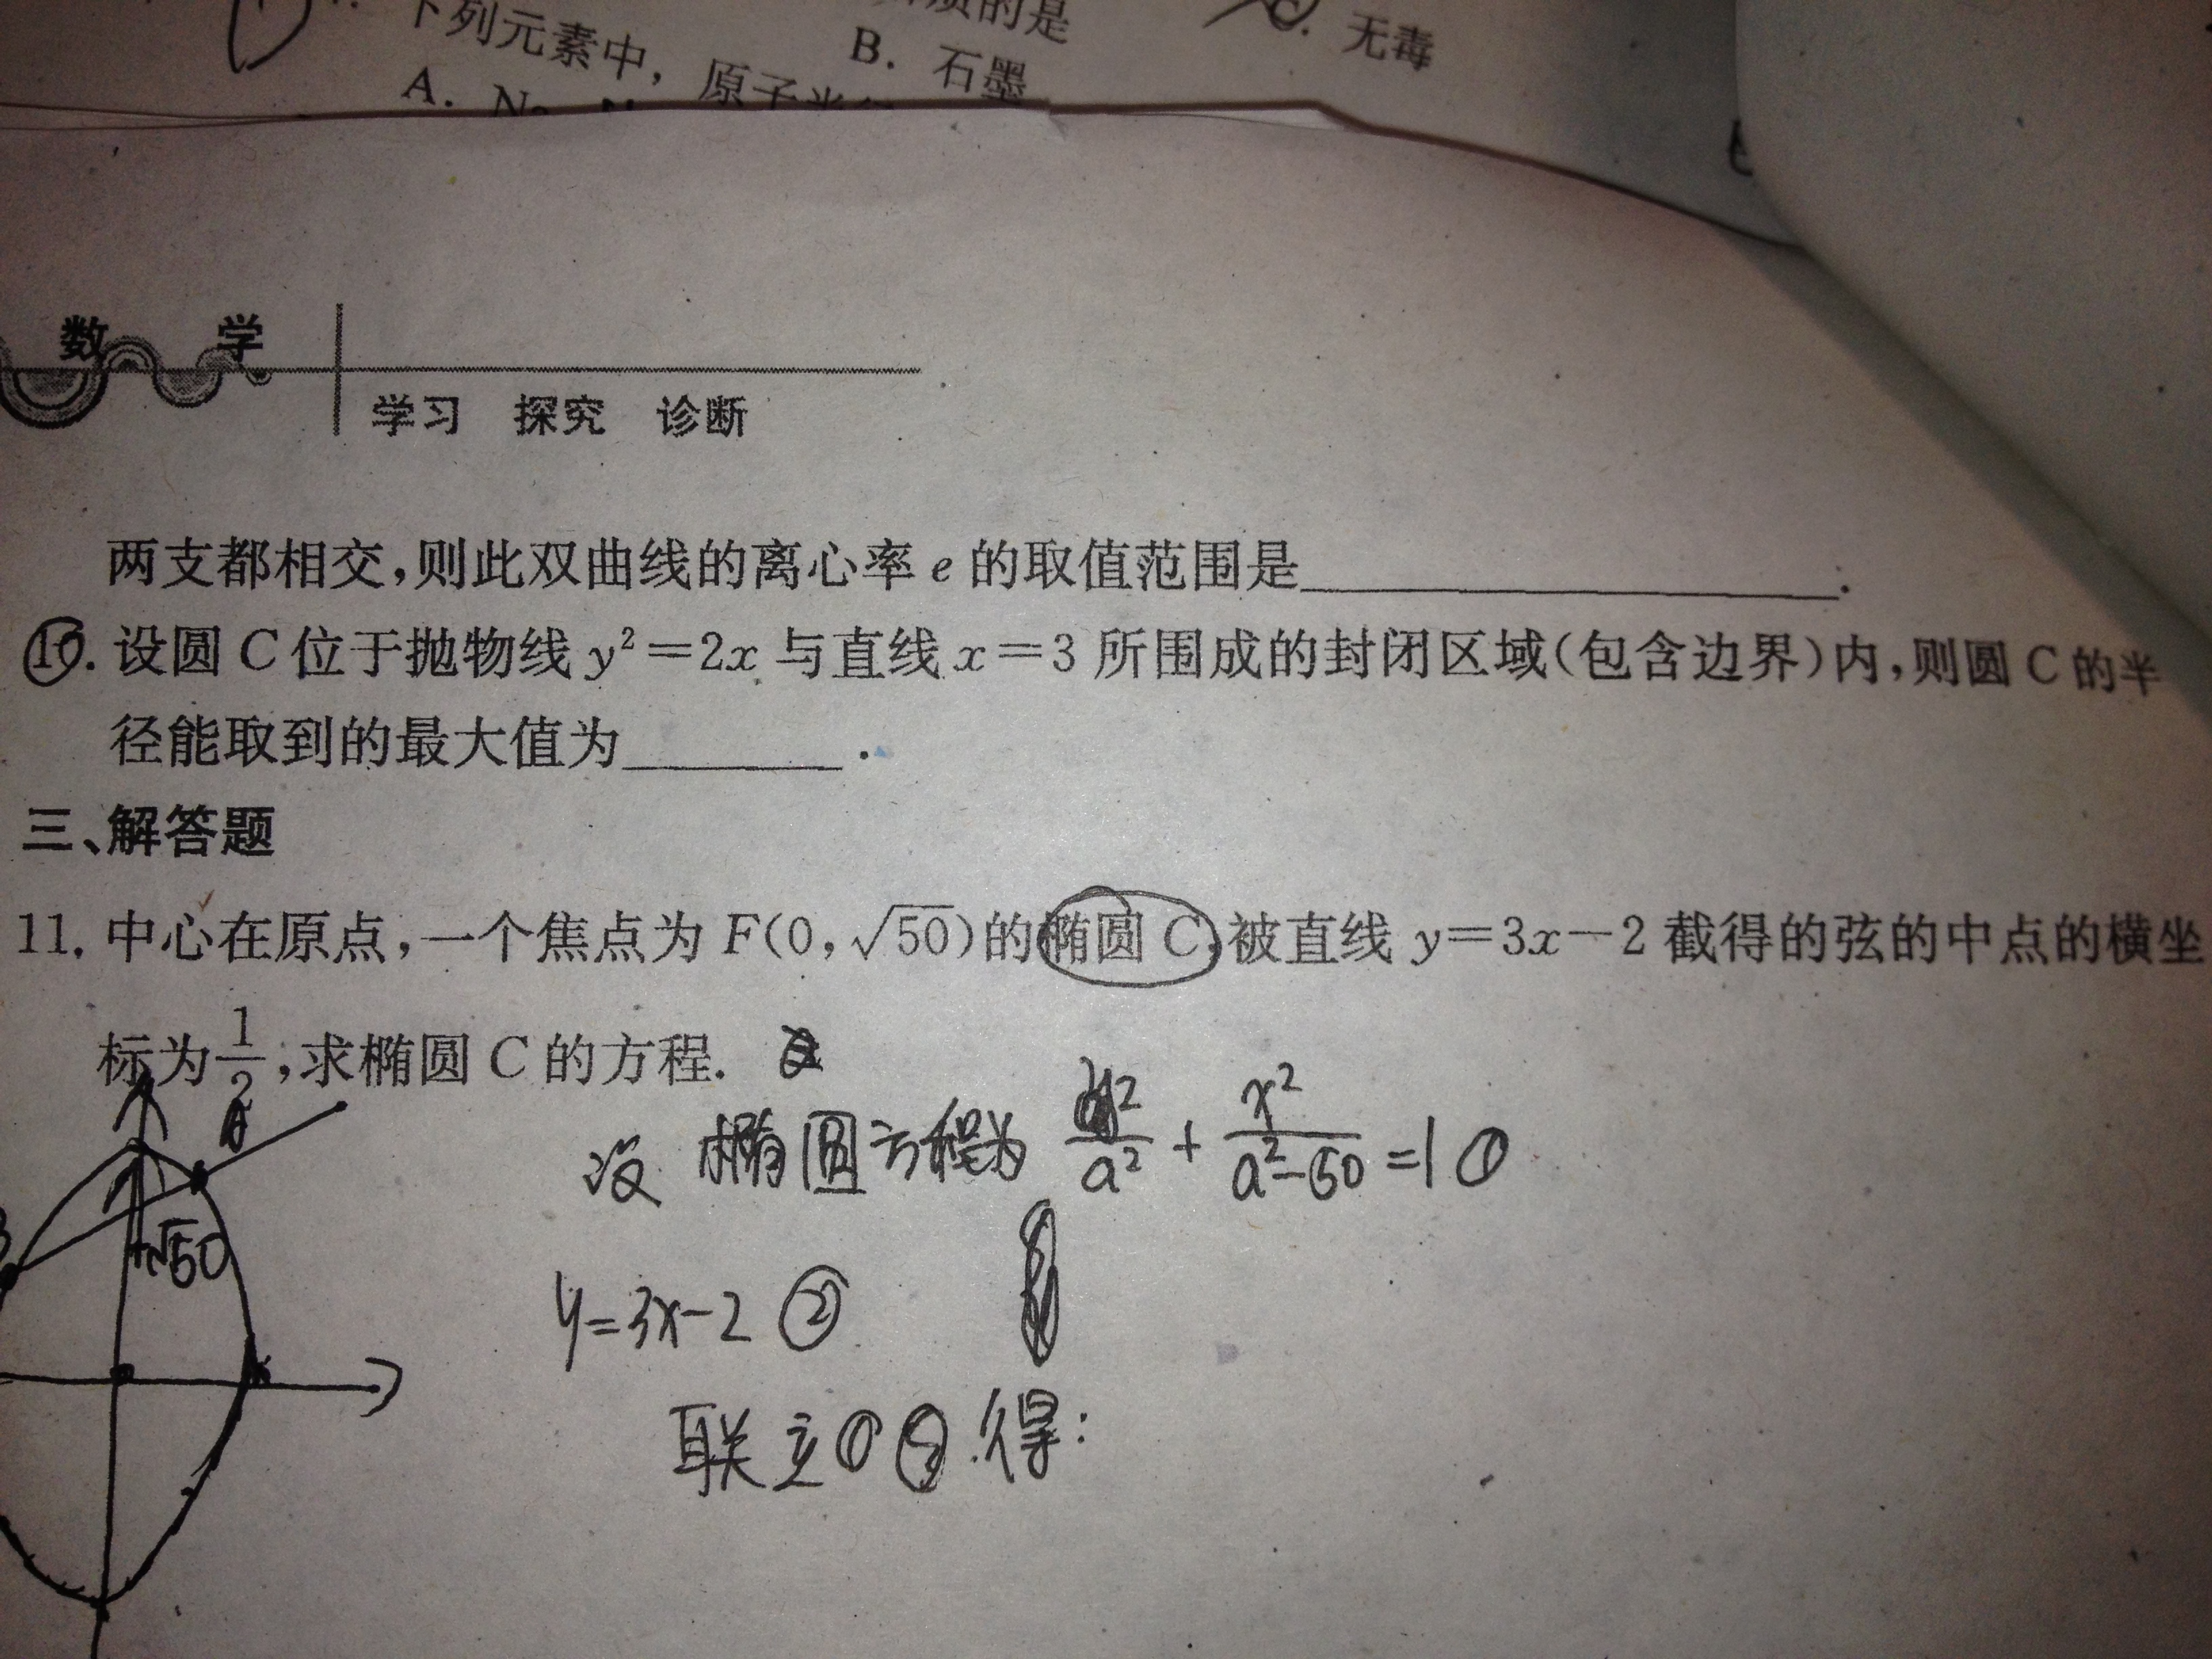 下列元素中，原子半
B. 石墨
无毒
A. Na
数 学
学习 探究 诊断
两支都相交,则此双曲线的离心率 e 的取值范围是____________.
10. 设圆 C 位于抛物线 y²=2x 与直线 x=3 所围成的封闭区域(包含边界)内,则圆 C 的半
径能取到的最大值为________.
三、解答题
11. 中心在原点,一个焦点为 F(0,√50)的椭圆 C,被直线 y=3x-2 截得的弦的中点的横坐
标为1/2,求椭圆 C 的方程.
设 椭圆方程为 y²/a² + x²/(a²-50) =1 ①
√50
y=3x-2 ②
联立①②得: